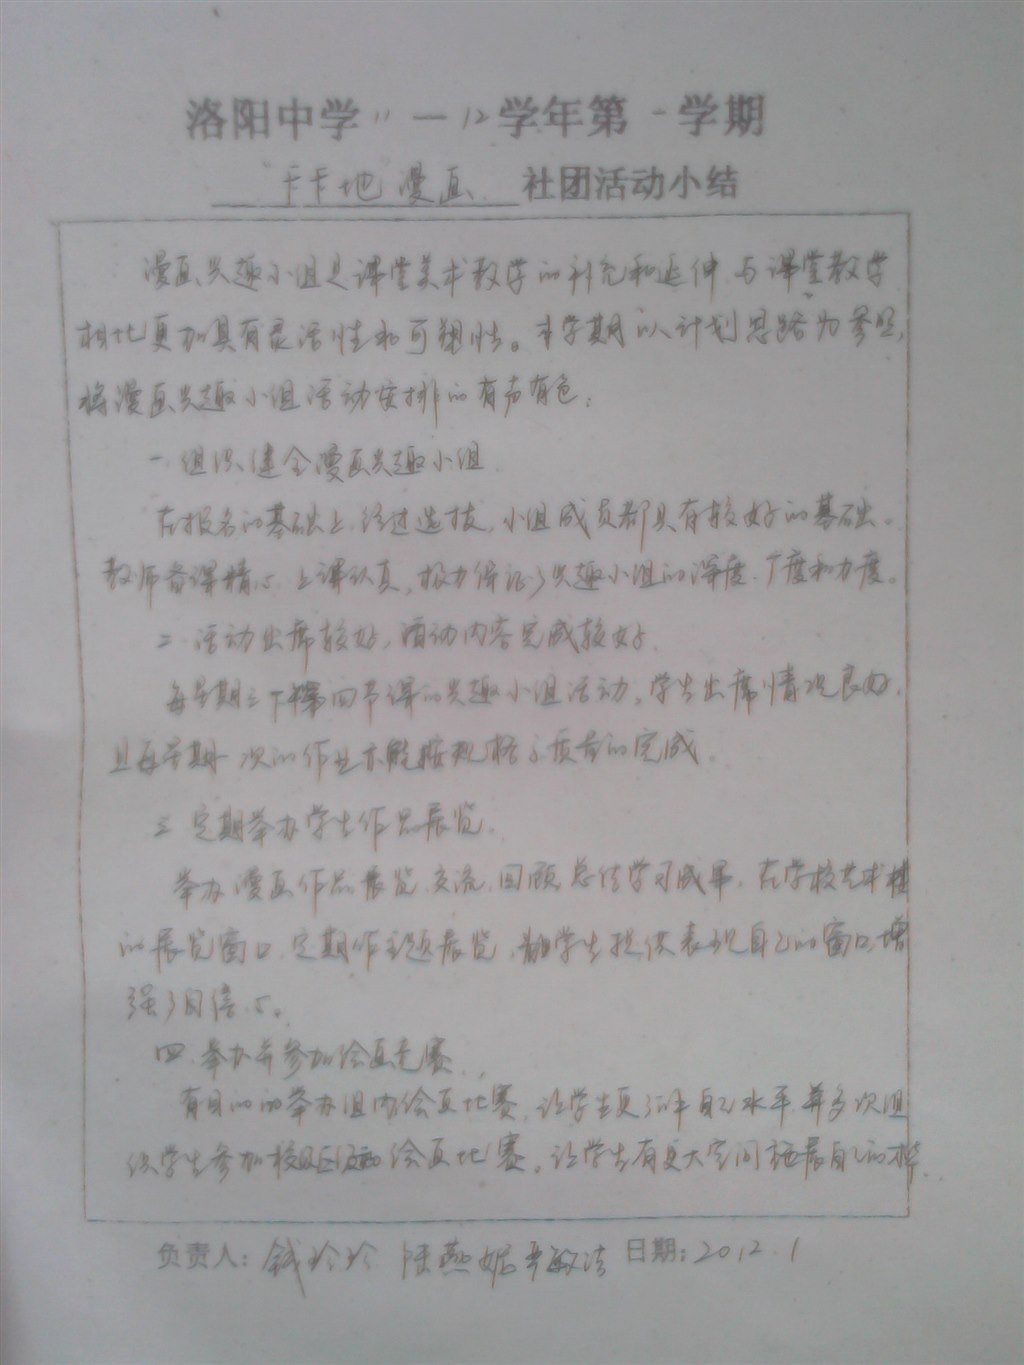 洛阳中学11—12学年第一学期
卡卡地漫画 社团活动小结
漫画兴趣小组是课堂美术教学的补充和延伸,与课堂教学
相比更加具有灵活性和可塑性。本学期以计划思路为参照,
将漫画兴趣小组活动安排的有声有色:
一.组织健全漫画兴趣小组.
在报名的基础上,经过选拔,小组成员都具有较好的基础。
教师备课精心,上课认真,极力保证了兴趣小组的深度、广度和力度。
二.活动出席较好,活动内容完成较好.
每星期三下午第四节课的兴趣小组活动,学生出席情况良好,
且每星期一次的作业亦能按规格与质量的完成.
三.定期举办学生作品展览.
举办漫画作品展览,交流,回顾,总结学习成果,在学校艺术楼
的展览窗口,定期作主题展览,为学生提供表现自己的窗口,增
强了自信心。
四.举办并参加绘画竞赛.
有目的的举办组内绘画比赛,让学生更了解自己水平,并多次组
织学生参加校绘画比赛,让学生有更大空间施展自己的才华.
负责人: 钱玲玲 陆燕妮 日期:2012.1